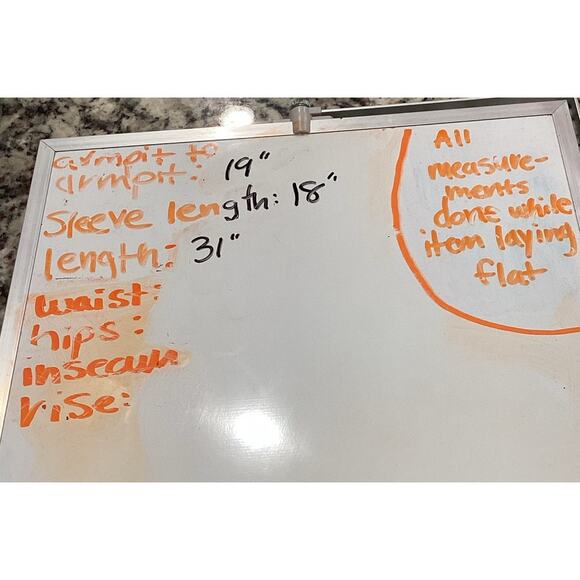 armpit to
armpit: 19"
Sleeve length: 18"
length: 31"
waist:
hips:
inseam
rise:
All
measure-
ments
done while
item laying
flat